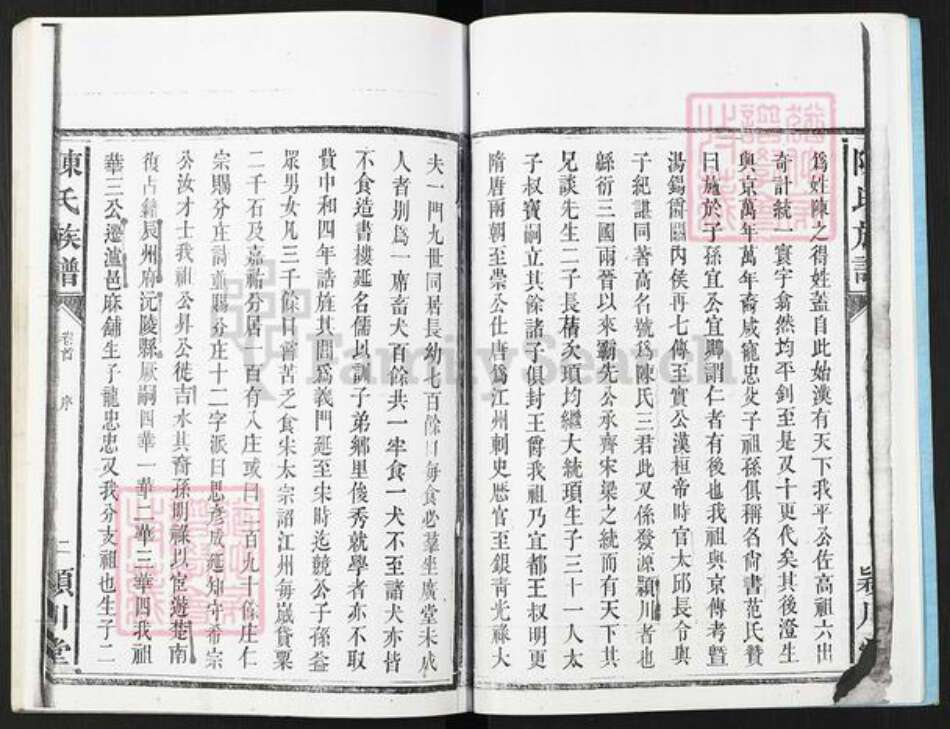 爲姓陳之得姓蓋自此始漢有天下我平公佐高祖六出
奇計統一寰宇翕然均平釗至是又十更代矣其後澄生
與京萬年萬年裔咸寵忠父子祖孫俱稱名尙書范氏贊
曰施於子孫宜公宜卿謂仁者有後也我祖與京傳考曁
湯錫爵關內侯再七傳至實公漢桓帝時官太邱長令與
子紀諶同著高名號爲陳氏三君此又係發源潁川者也
緜衍三國兩晉以來霸先公承齊宋梁之統而有天下其
兄談先生二子長蒨次頊均繼大統頊生子三十一人太
子叔寶嗣立其餘諸子俱封王爵我祖乃宜都王叔明更
隋唐兩朝至崇公仕唐爲江州刺史厯官至銀靑光祿大
夫一門九世同居長幼七百餘口每食必羣坐廣堂未成
人者別爲一席畜犬百餘共一牢食一犬不至諸犬亦皆
不食造書樓延名儒以訓子弟鄉里俊秀就學者亦不取
費中和四年誥旌其閭爲義門延至宋時迄競公子孫益
眾男女凡三千餘口嘗苦乏食宋太宗詔江州每歲貸粟
二千石及嘉祐分居一百有八庄或曰二百九十餘庄仁
宗賜分庄詩並賜分庄十二字派曰思彥成延知守希宗
公汝才士我祖公昇公徙吉水其裔孫明祿以宦遊楚南
復占籍辰州府沅陵縣厥嗣四華一華二華三華四我祖
華三公遷瀘邑麻鋪生子龍忠忠又我分支祖也生子二
陳氏族譜
卷首
序
二
潁川堂